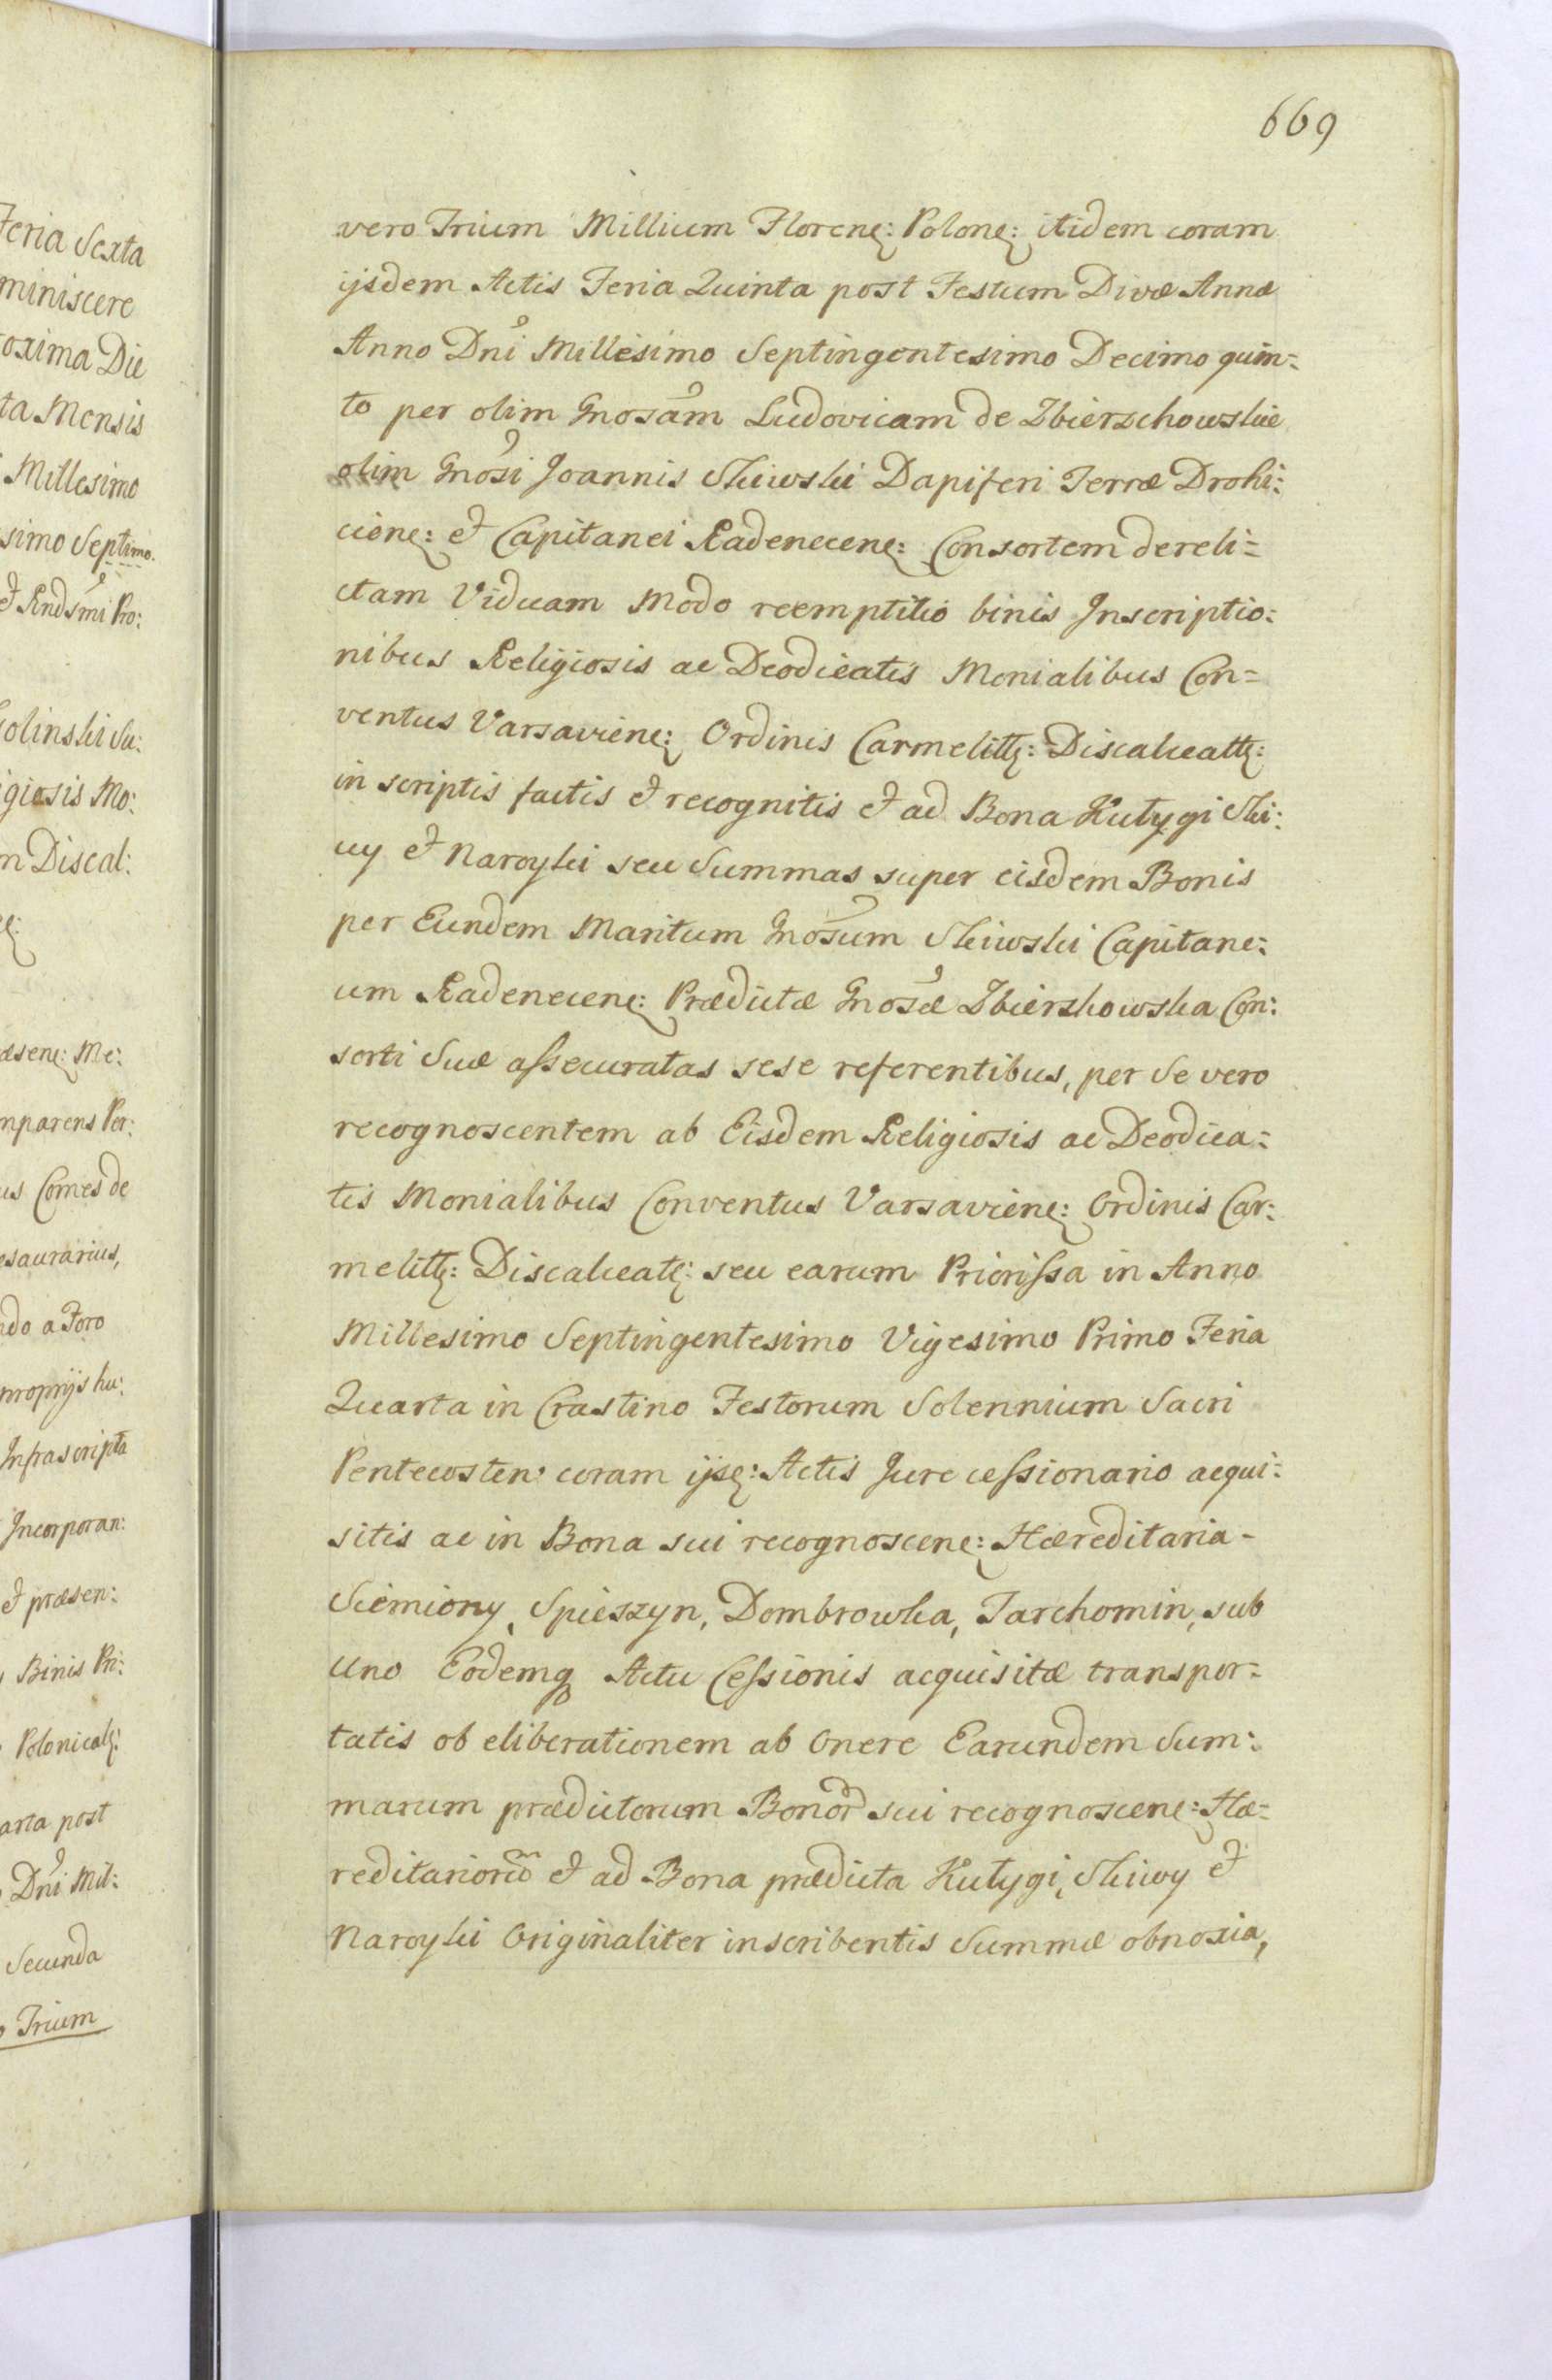 Feria Sexta
miniscere
oxima Die
ta Mensis
Millesimo
simo Septimo.
et Rndsmi Pro:
Golinski Su:
igiosis Mo:
m Discal:
æsene: Me:
mparens Per:
us Comes de
esaurarius,
ndo a Foro
proprijs hu:
Infrascripta
Incorporan:
et præsen:
Binis Pri:
Polonicalę:
arta post
Dni Mil:
Secunda
Trium
669
vero Trium Millium Florenę: Polonę: itidem coram
ijsdem Actis Feria Quinta post Festum Divæ Annæ
Anno Dni Millesimo Septingentesimo Decimo quin=
to per olim Gnosam Ludovicam de Zbierzchowskie
olim Gnosi Joannis Skiwski Dapiferi Terræ Drohi:
cienę: et Capitanei Radenecenę: Consortem dereli=
ctam Viduam Modo reemptitio binis Inscriptio:
nibus Religiosis ac Deodicatis Monialibus Con=
ventus Varsavienę: Ordinis Carmelittę: Discalceattę:
in scriptis factis et recognitis et ad Bona Kutygi Ski:
wy et Naroyki seu Summas super eisdem Bonis
per Eundem Maritum Gnosum Skiwski Capitane:
um Radenecenę: Prædictæ Gnosæ Zbierzkowska Con:
sorti Suæ assecuratas sese referentibus, per se vero
recognoscentem ab Eisdem Religiosis ac Deodica=
tis Monialibus Conventus Varsavienę: Ordinis Car:
melittę: Discalceatę: seu earum Priorissa in Anno
Millesimo Septingentesimo Vigesimo Primo Feria
Quarta in Crastino Festorum Solennium Sacri
Pentecosten: coram ijsę: Actis Jure cessionario acqui:
sitis ac in Bona sui recognoscenę: Hæreditaria-
Siemiony, Spieszyn, Dombrowka, Tarchomin, sub
Uno Eodemq Actu Cessionis acquisitæ transpor-
tatis ob eliberationem ab Onere Earundem Sum:
marum prædictorum Bonor sui recognoscenę: Hæ=
reditariorum et ad Bona prædicta Kutygi, Skiwy et
Naroyki Originaliter inscribentis Summæ obnoxia,